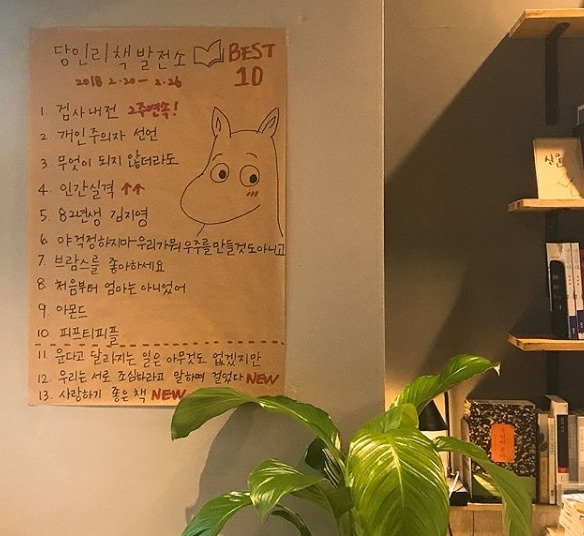 당인리책발전소 BEST
10
2018 2.20 - 2.26
1. 검사내전 2주연속!
2. 개인주의자 선언
3. 무엇이 되지 않더라도
4. 인간실격 ↑↑
5. 82년생 김지영
6. 야 걱정하지마 우리가 뭐 우주를 만들것도 아니고
7. 브람스를 좋아하세요
8. 처음부터 엄마는 아니었어
9. 아몬드
10. 피프티피플
11. 운다고 달라지는 일은 아무것도 없겠지만
12. 우리는 서로 조심하라고 말하며 걸었다 NEW
13. 사랑하기 좋은 책 NEW